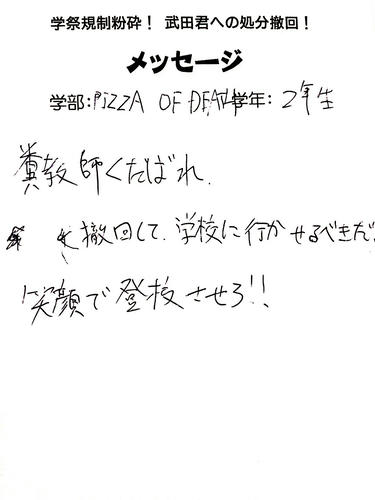 学祭規制粉砕！ 武田君への処分撤回！
メッセージ
学部:PIZZA OF DEATH学年: 2年生
糞教師くたばれ.
撤回して、学校に行かせるべきだ
笑顔で登校させろ!!